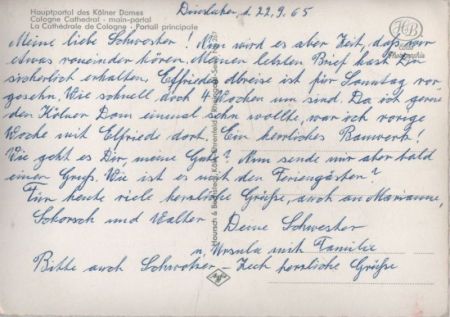 Hauptportal des Kölner Domes
Cologne Cathedral - main-portal
La Cathédrale de Cologne - Portail principale
d. 22.9.65
Meine liebe Schwester! Nun wird es aber Zeit, daß wir
etwas voneinander hören. Meinen letzten Brief hast Du
sicherlich erhalten. Elfriedes Abreise ist für Sonntag vor-
gesehn. Wie schnell doch 4 Wochen um sind. Da ich gerne
den Kölner Dom einmal sehn wollte, war ich vorige
Woche mit Elfriede dort. Ein herrliches Bauwerk!
Wie geht es Dir, meine Gute? Nun sende mir aber bald
einen Gruß. Wie ist es mit den Feriengästen?
Für heute viele herzliche Grüße, auch an Marianne,
Schorsch und Walter
Deine Schwester
u. Ursula mit Familie
Bitte auch Schwager – Euch herzliche Grüße